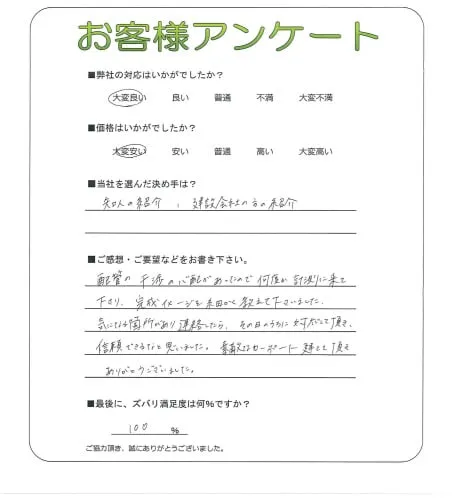 お客様アンケート
■弊社の対応はいかがでしたか？
大変良い 良い 普通 不満 大変不満
■価格はいかがでしたか？
大変安い 安い 普通 高い 大変高い
■当社を選んだ決め手は？
知人の紹介、建設会社の方の紹介
■ご感想・ご要望などをお書き下さい。
配管の干渉の心配があったので何度か計測に来て
下さり、完成イメージを細かく教えて下さいました。
気になる箇所があり連絡したら、その日のうちに対応して頂き、
信頼できるなと思いました。素敵なカーポート建てて頂き
ありがとうございました。
■最後に、ズバリ満足度は何％ですか？
100 ％
ご協力頂き、誠にありがとうございました。